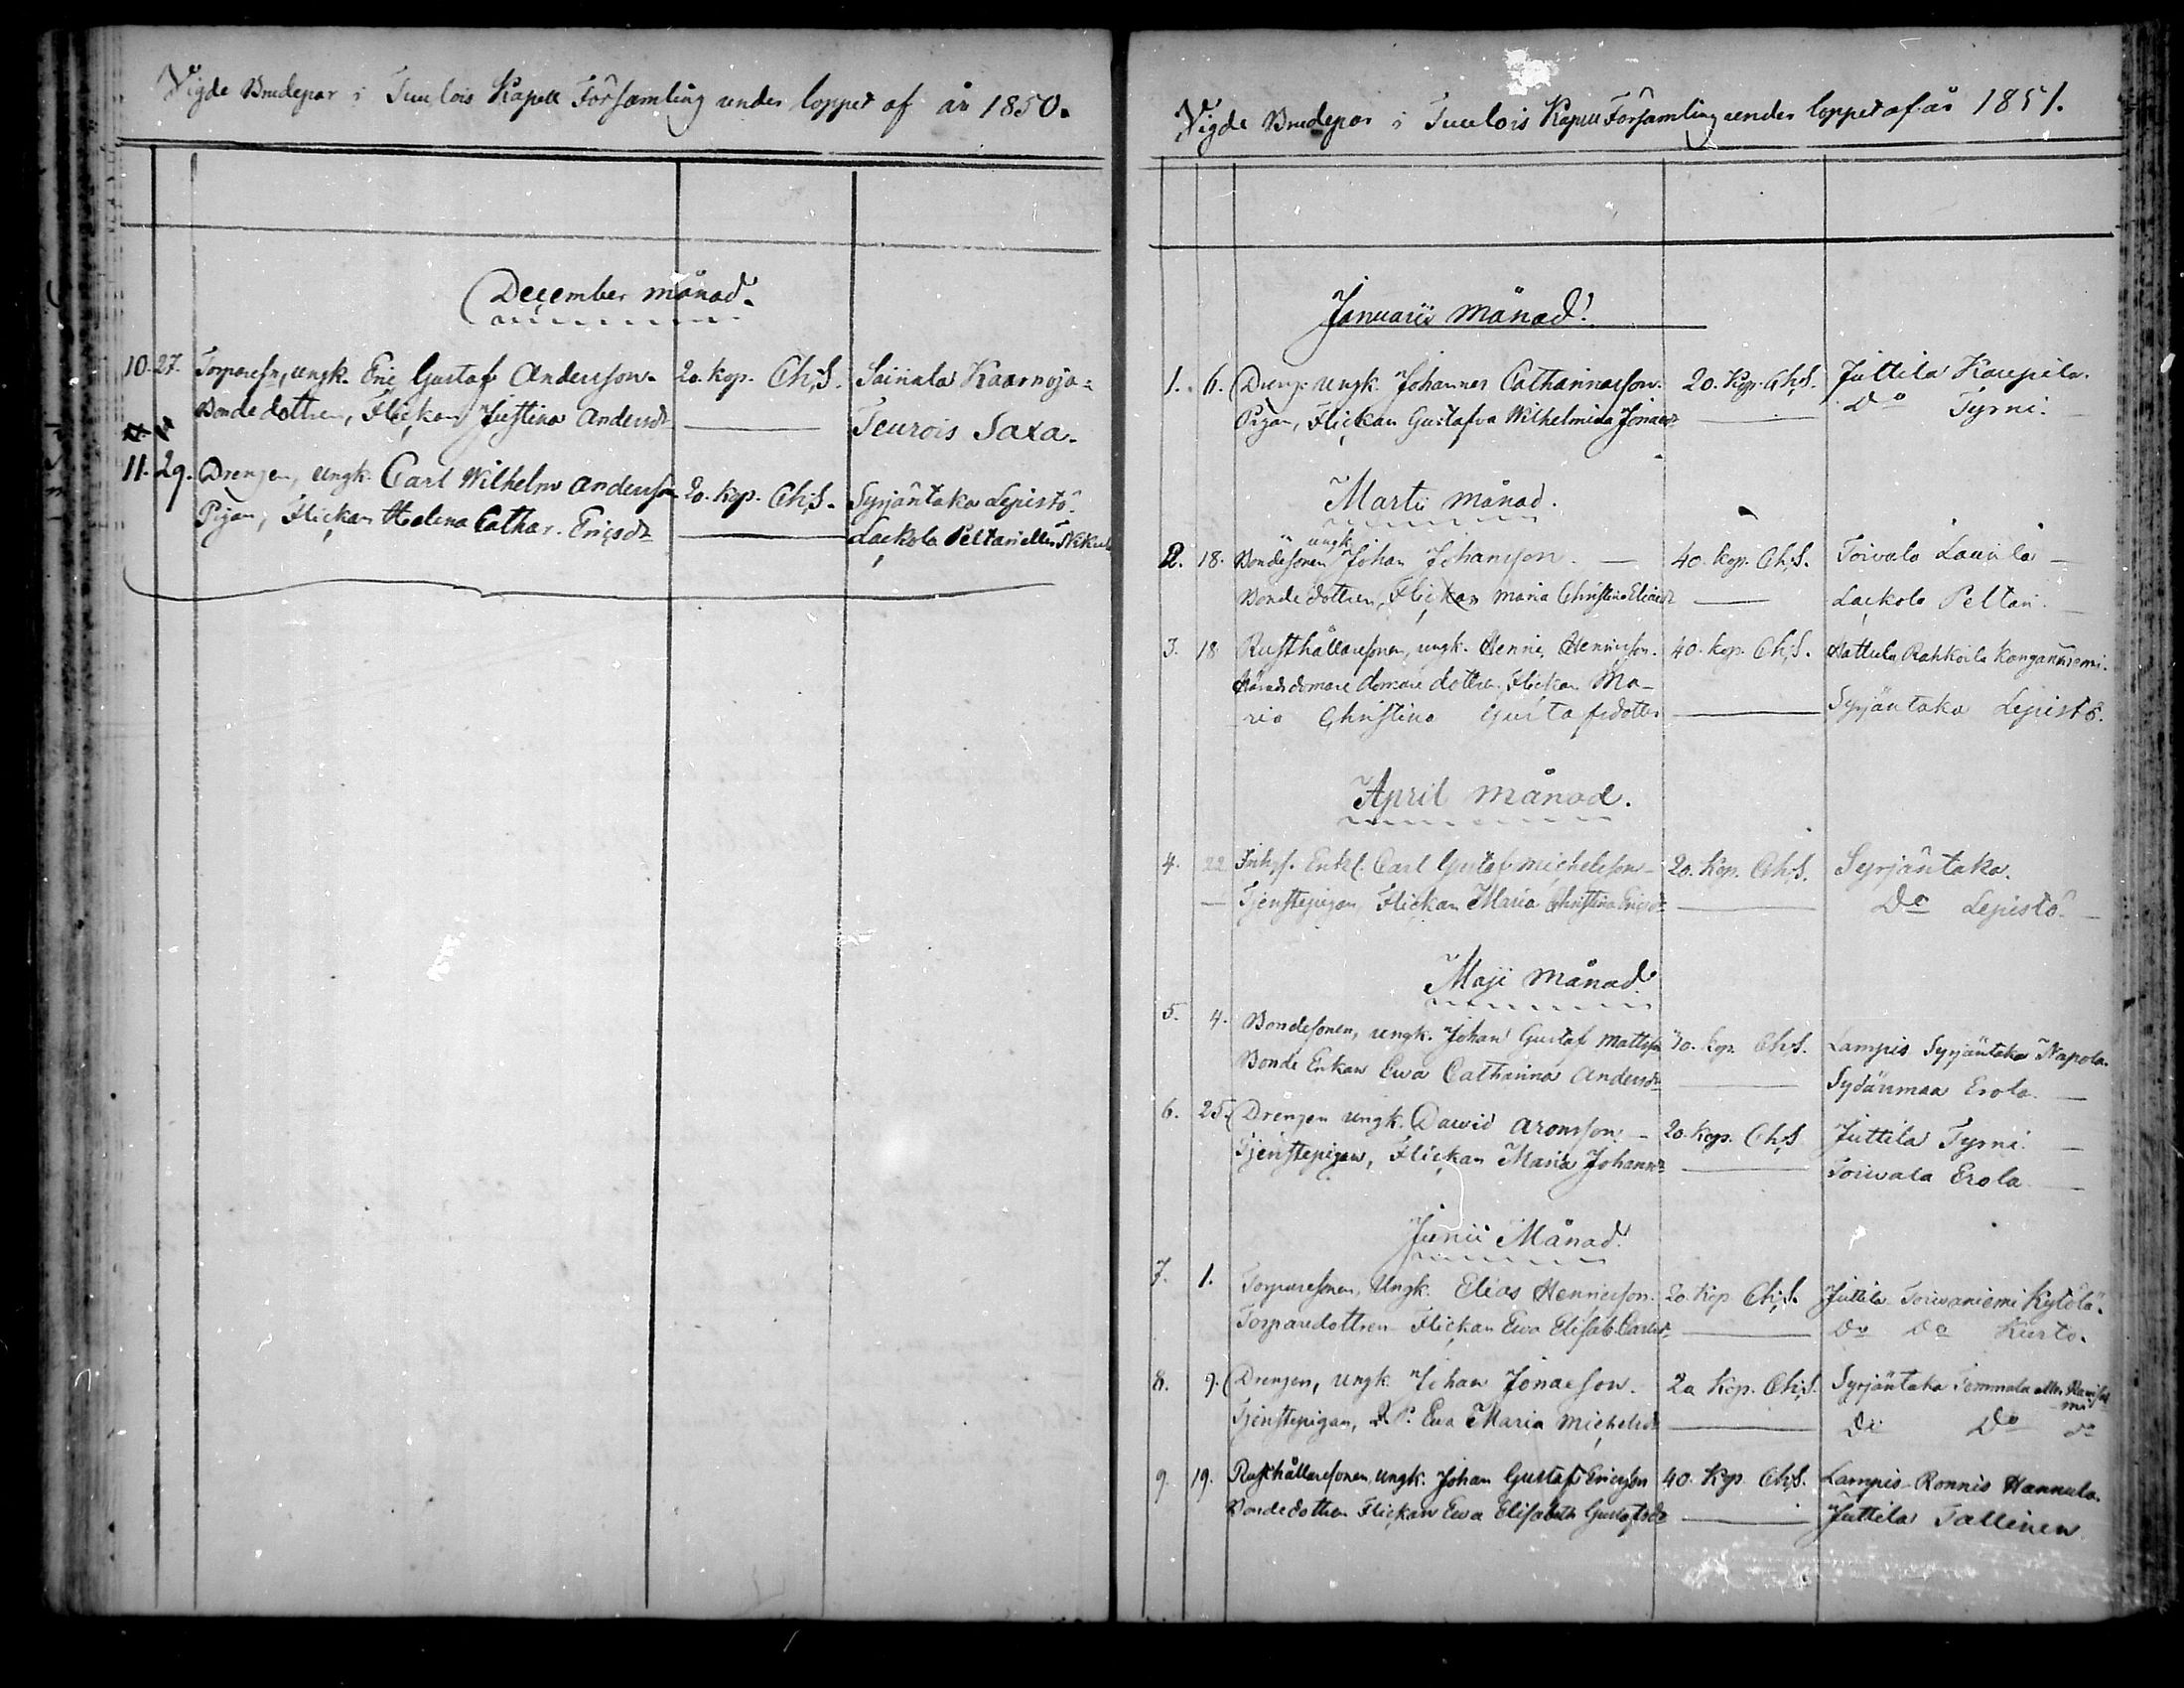 Vigde Brudepar i Tuulois Kapell Församling under loppet af år 1850.
December månad.
10. 27. Torparesn, ungk. Eric Gustaf Andersson. 20. kop. Ch;S. Sairiala Kaarnoja=
Bondedottren, Flickan Justina Andersdr Teurois Saxa.
11. 29. Drengen, ungk. Carl Wilhelm Andersson 20. kop. Ch;S. Syrjäntaka Lepistö.
Pigan, Flickan Helena Cathar. Ericsdr Lackola Peltari eller
Vigde Brudepar i Tuulois Kapell Församling under loppet af år 1851.
Januarii månad.
1. 6. Dreng. ungk. Johannes Catharinaeson. 20. Kop. Ch;S. Juttila Kaupila.
Pigan, Flickan Gustafva Wilhelmina Jonaedr Do Tyrni.
Martii månad.
2. 18. Bondesonen ungk. Johan Johansson. 40. kop. Ch;S. Toivala Laurila
Bondedottren, Flickan Maria Christina Eliaedr Lackola Peltari.
3. 18 Rusthållaresonen, ungk. Henric Henricsson. 40. kop. Ch;S. Hattula Rahkoila Kangasniemi.
Häradsdomare domare dottren, Flickan Ma-
ria Christina Gustafsdotter Syrjäntaka Lepistö.
April månad.
4. 22 Inhys. Enkl. Carl Gustaf Michelsson 20. Kop. Ch;S. Syrjäntaka.
Tjenstepigan, Flickan Maria Christina Ericsdr Do Lepistö.
Maji månad
5. 4. Bondesonen, ungk. Johan Gustaf Mattsson 40. kop. Ch;S. Lampis Syrjäntaka Napola.
Bonde Enkan Ewa Catharina Andersdr Sydänmaa Erola.
6. 25. Drengen ungk. David Aronsson. 20. Kop. Ch;S Juttila Tyrni.
Tjenstepigan, Flickan Maria Johansdr Toivala Erola
Junii Månad.
7. 1. Torparesonen, Ungk. Elias Henricsson. 20. Kop Ch;S. Juttila Toivaniemi Kytölä.
Torparedottren Flickan Ewa Elisab. Carlsdr Do Do Kurto.
8. 9. Drengen, Ungk. Johan Jonaeson. 20 Kop. Ch;S. Syrjäntaka Temmala eller
Tjenstepigan, Q. P. Ewa Maria Michelsdr Do Do do
9. 19. Rusthållaresonen, ungk. Johan Gustaf Ericsson 40. Kop. Ch;S. Lampis Ronnis Hannula.
Bondedottren Flickan Ewa Elisabeth Gustafsdr Juttila Tallinen